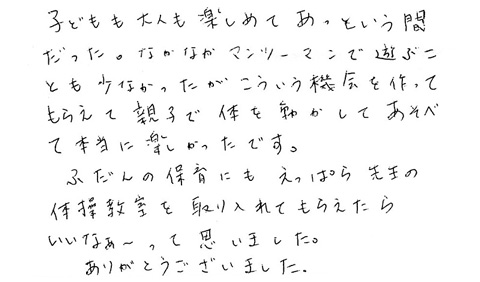 子どもも大人も楽しめてあっという間
だった。なかなかマンツーマンで遊ぶこ
とも少なかったがこういう機会を作って
もらえて親子で体を動かしてあそべ
て本当に楽しかったです。
ふだんの保育にもえっぱら先生の
体操教室を取り入れてもらえたら
いいなぁ〜って思いました。
ありがとうございました.